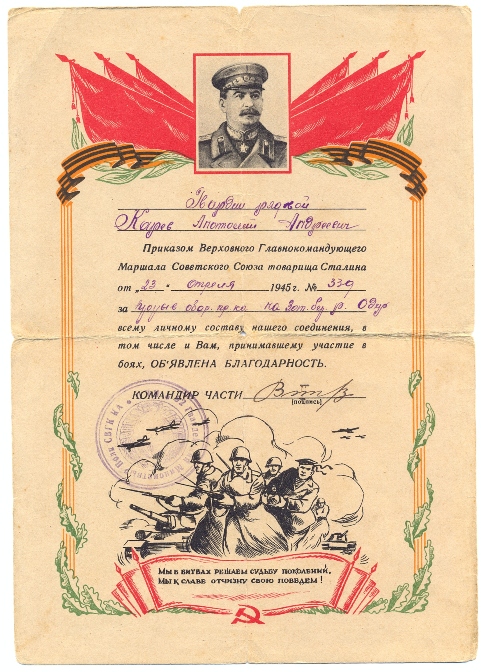 Гвардии рядовой
Карев Анатолий Андреевич
Приказом Верховного Главнокомандующего
Маршала Советского Союза товарища Сталина
от „23“ апреля 1945 г. № 339
за прорыв обор. пр-ка на зап. бер. р. Одер
всему личному составу нашего соединения, в
том числе и Вам, принимавшему участие в
боях, ОБ'ЯВЛЕНА БЛАГОДАРНОСТЬ.
КОМАНДИР ЧАСТИ
(подпись)
МЫ В БИТВАХ РЕШАЕМ СУДЬБУ ПОКОЛЕНИЙ,
МЫ К СЛАВЕ ОТЧИЗНУ СВОЮ ПОВЕДЕМ!